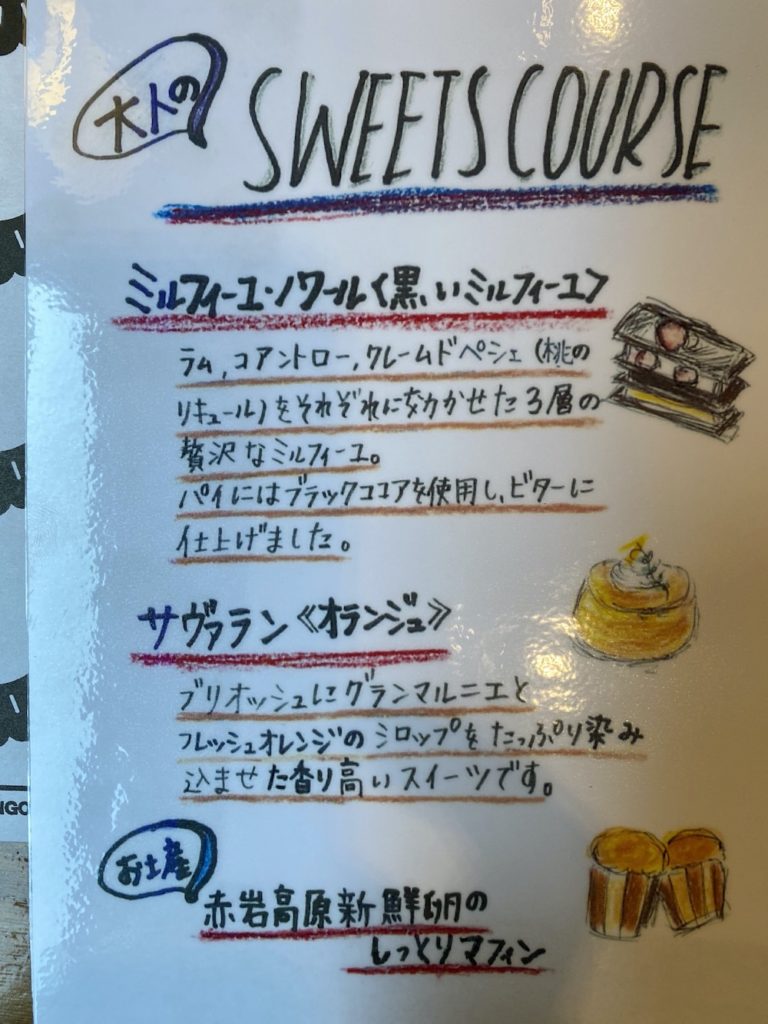 大人の
SWEETS COURSE
ミルフィーユ・ノワール〈黒いミルフィーユ〉
ラム,コアントロー,クレームドペシェ(桃の
リキュール)をそれぞれに効かせた3層の
贅沢なミルフィーユ。
パイにはブラックココアを使用し、ビターに
仕上げました。
サヴァラン《オランジュ》
ブリオッシュにグランマルニエと
フレッシュオレンジのシロップをたっぷり染み
込ませた香り高いスイーツです。
お土産
赤岩高原新鮮卵の
しっとりマフィン